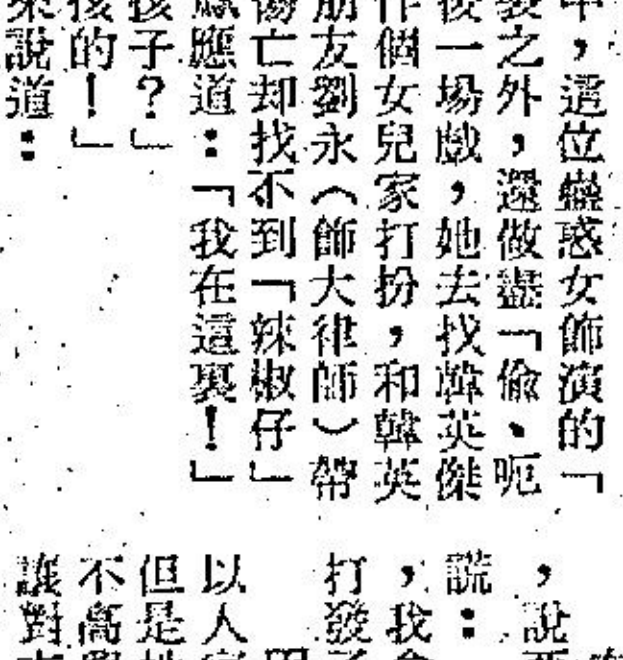 中，這位蠱惑女飾演的「
發之外，還做盡「偷、呃
後一場戲，她去找韓英傑
作個女兒家打扮，和韓英
朋友劉永（飾大律師）帶
傷亡却找不到「辣椒仔」
應道：「我在這裏！」
孩子？」
孩的！」
來說道：
，說
謊：
，我
打發
以人
但是
不高
讓對